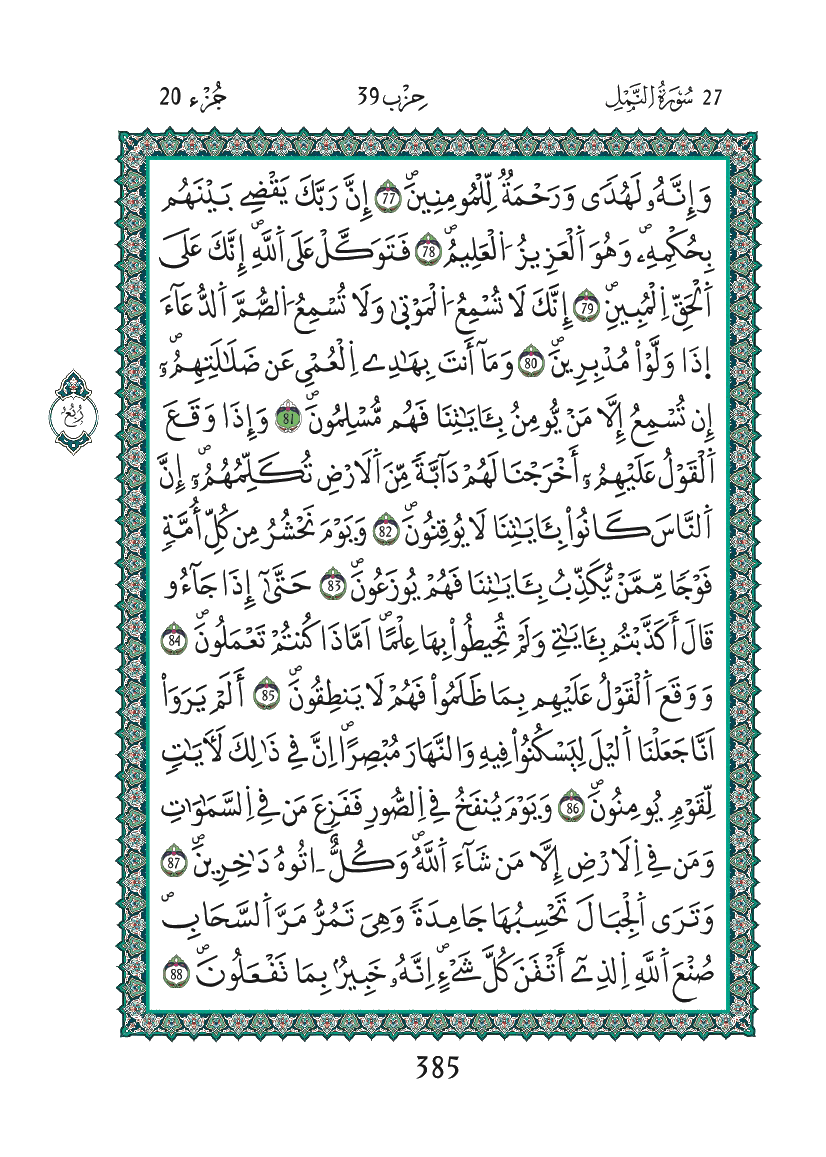 27 سُورَةُ النَّمْلِ
حِزْب 39
جُزْء 20
وَإِنَّهُۥ لَهُدٗى وَرَحْمَةٞ لِّلْمُومِنِينَۖ 77 إِنَّ رَبَّكَ يَقْضِے بَيْنَهُم
بِحُكْمِهِۦۖ وَهُوَ اَ۬لْعَزِيزُ اُ۬لْعَلِيمُۖ 78 فَتَوَكَّلْ عَلَى اَ۬للَّهِۖ إِنَّكَ عَلَى
اَ۬لْحَقِّ اِ۬لْمُبِينِۖ 79 إِنَّكَ لَا تُسْمِعُ اُ۬لْمَوْتٜىٰ وَلَا تُسْمِعُ اُ۬لصُّمَّ اَ۬لدُّعَآءَ
اِ۪ذَا وَلَّوْاْ مُدْبِرِينَۖ 80 وَمَآ أَنتَ بِهَٰدِے اِ۬لْعُمْيِ عَن ضَلَٰلَتِهِمُۥٓۖ
إِن تُسْمِعُ إِلَّا مَنْ يُّومِنُ بِـَٔايَٰتِنَا فَهُم مُّسْلِمُونَۖ 81 وَإِذَا وَقَعَ
اَ۬لْقَوْلُ عَلَيْهِمُۥٓ أَخْرَجْنَا لَهُمْ دَآبَّةٗ مِّنَ اَ۬لَارْضِ تُكَلِّمُهُمُۥٓۖ إِنَّ
اَ۬لنَّاسَ كَانُواْ بِـَٔايَٰتِنَا لَا يُوقِنُونَۖ 82 وَيَوْمَ نَحْشُرُ مِن كُلِّ أُمَّةٖ
فَوْجٗا مِّمَّنْ يُّكَذِّبُ بِـَٔايَٰتِنَا فَهُمْ يُوزَعُونَۖ 83 حَتَّىٰٓ إِذَا جَآءُو
قَالَ أَكَذَّبْتُم بِـَٔايَٰتِے وَلَمْ تُحِيطُواْ بِهَا عِلْماًۖ اَمَّاذَا كُنتُمْ تَعْمَلُونَۖ 84
وَوَقَعَ اَ۬لْقَوْلُ عَلَيْهِم بِمَا ظَلَمُواْ فَهُمْ لَا يَنطِقُونَۖ 85 أَلَمْ يَرَوَاْ
اَنَّا جَعَلْنَا اَ۬ليْلَ لِيَسْكُنُواْ فِيهِ وَالنَّهَارَ مُبْصِراًۖ اِنَّ فِے ذَٰلِكَ لَأٓيَٰتٖ
لِّقَوْمٖ يُومِنُونَۖ 86 وَيَوْمَ يُنفَخُ فِے اِ۬لصُّورِ فَفَزِعَ مَن فِے اِ۬لسَّمَٰوَٰتِ
وَمَن فِے اِ۬لَارْضِ إِلَّا مَن شَآءَ اَ۬للَّهُۖ وَكُلٌّ ـ اتُوهُ دَٰخِرِينَۖ 87
وَتَرَى اَ۬لْجِبَالَ تَحْسِبُهَا جَامِدَةٗ وَهِيَ تَمُرُّ مَرَّ اَ۬لسَّحَابِۖ
صُنْعَ اَ۬للَّهِ اِ۬لذِےٓ أَتْقَنَ كُلَّ شَےْءٍۖ اِنَّهُۥ خَبِيرُۢ بِمَا تَفْعَلُونَۖ 88
رُبُعُ
385